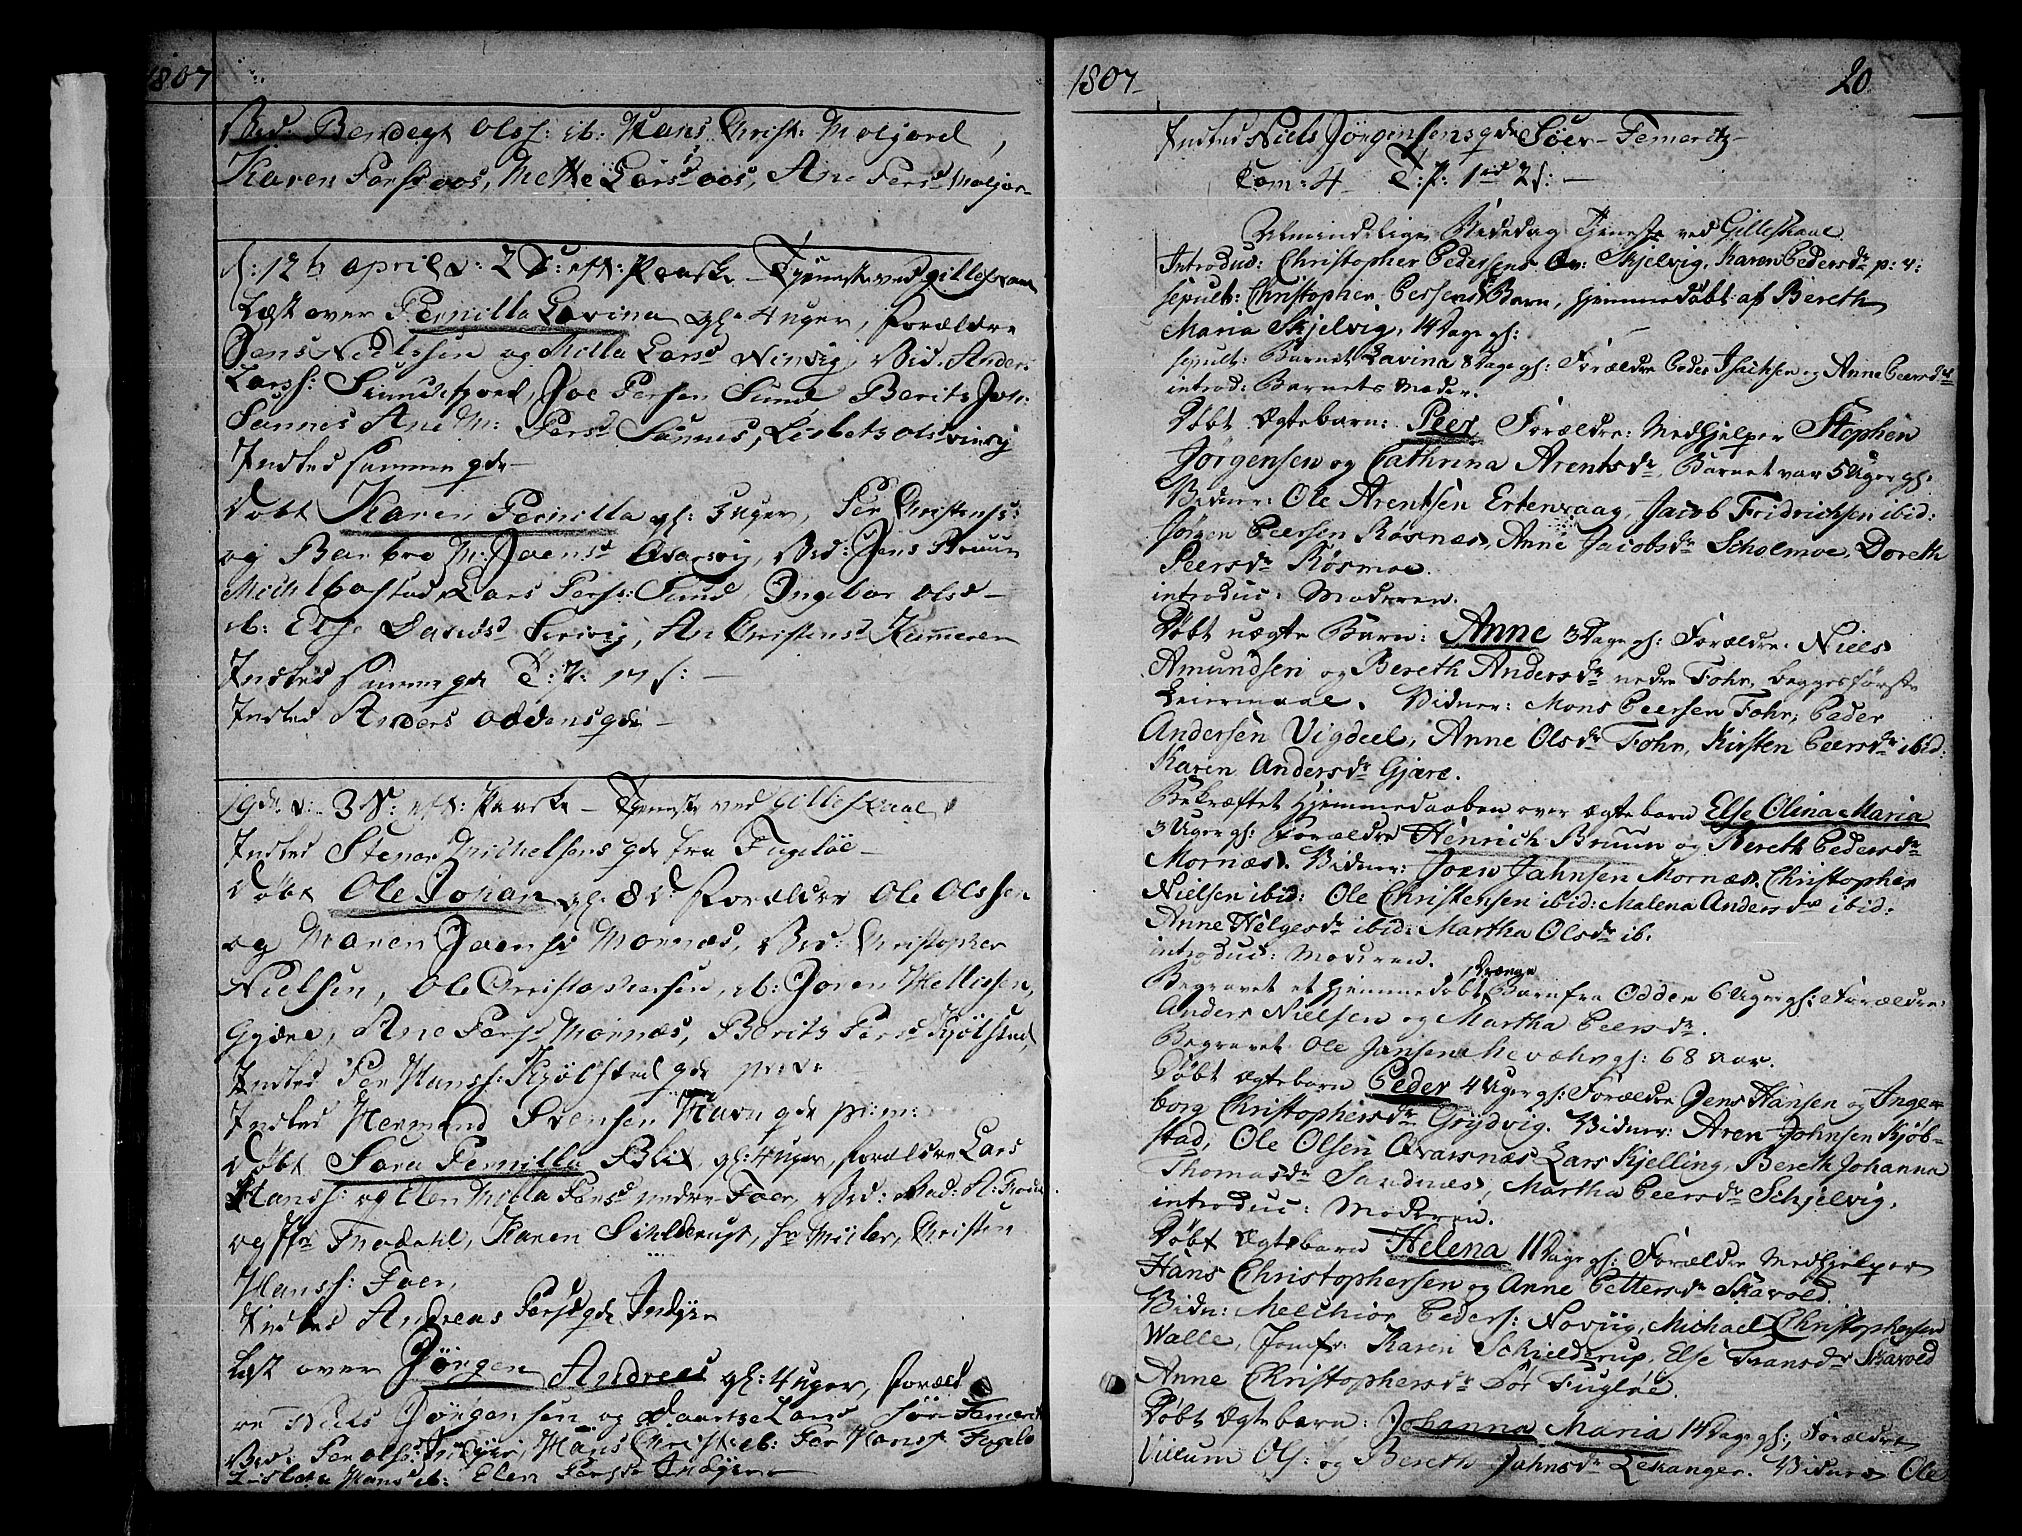 1807
Vid: Bendegt Olss: ib: Hans Christ: Moljord,
Karen Persd oos, Mette Larsd oos, Ane Persd Moljor
d: 12 april d: 2 S: eft: Paaske - Tjeneste ved Gilleskaal
Læst over Pernilla Lavina gl: 4 uger, forældre
Jens Nielssen og Milla Larsd Vinvig, Vid: Anders
Larss: Sundsfjord, Joe Persen Sund Berit Joh:
Sannes Ane M: Persd Sannes, Lisbeth Olsd vinvig
Indled samme qde
Døbt Karen Pernilla gl: 3 uger, Per Christens:
og Barbro M: Joensd, Vid: Jens Bruun
Lars Pers: Sund, Ingebor Olsd
ib: Else Davidsd, An Christensd
Indled samme qde T: P: 17 s:
Indled Anders Oddens qde
19de d: 3 S: eft: Paaske - Tjeneste ved Gilleskaal
Indled Stenor Michelsens qde fra Fugeløe
Døbt Ole Johan gl: 8 d: forældre Ole Olssen
og Maren Joensd Mornæs, Vid: Christopher
Nielsen, Ole Christophersen, ib: Joren Hellissen,
Gjære, Ane Persd Mornæs, Berith Persd Kjølstad,
Indled Per Hanss: Kjølstad qde
Indled Hermand Svensen Havn qde prim:
Døbt Sara Pernilla Blix, gl: 4 uger, forældre Lars
Hanss: og Elen Milla Persd nedre Foer, Vid: Mad:
og Jfr Frodahl, Karen Schilderup, Hr Møller, Christen
Hanss: Foer,
Indled Andreas Persens qde Indyer
Læst over Jørgen Andreas gl: 4 uger, foræld
re Niels Jørgensen og Larsd Sør Femeris
Vid: Per Olss: Indyer, Hans Christ: ib: Per Hanss: Fugelø
Lisbeth Hansd ib: Elen Persd Indyer
1807 20
Indled Niels Jørgensens qde Søer-Femeritz
Com: 4 T: P: 1 rd 2 s:
Almindelige Bededag Tjeneste ved Gilleskaal.
Introdus: Christopher Pedersens Qv: Skjelvig, Karen Pedersdr p: v:
sepult: Christopher Persens Barn, hjemmedøbt af Bereth
Maria Skjelvig, 14 Dage gl:
sepult: Barnet Lavina 8 Dage gl: Forældre Peder Isachsen og Anne Peersdr
introd: Barnets Moder.
Døbt Ægtebarn: Peer Forældre: Medhjelper Stephen
Jørgensen og Cathrina Arentsdr, Barnet var 5 Uger gl:
Vidner: Ole Arentsen Ertenvaag, Jacob Fridrichsen ibid:
Jørgen Peersen Røsnæs, Anne Jacobsdr Scholmoe, Doreth
Peersdr Røsmoe.
introduc: Moderen.
Døbt uægte Barn: Anne 3 Dage gl: Forældre: Niels
Amundsen og Bereth Andersdr nedre Fohr, begges første
Leiermaal. Vidner: Mons Peersen Fohr, Peder
Andersen Vigdeel, Anne Olsdr Fohr, Kirsten Peersdr ibid:
Karen Andersdr Gjære.
Bekræftet Hjemmedaaben over Ægtebarn Else Olina Maria
3 Uger gl: Forældre Henrich Bruun og Bereth Pedersdr
Mornæs. Vidner: Joen Jahnsen Mornæs, Christopher
Nielsen ibid: Ole Christensen ibid: Malena Andersdr ibid:
Anne Helgesdr ibid: Martha Olsdr ib:
introduc: Moderen.
Begravet et hjemmedøbt Drænge Barn fra Odden 6 Uger gl: Forældre:
Anders Nielsen og Martha Peersdr.
Begravet Ole Jansen gl: 68 aar.
Døbt Ægtebarn Peder 4 Uger gl: Forældre Jens Hansen og Inge-
borg Christophersdr Grydvig. Vidner: Aren Johnsen Kjøb-
stad, Ole Olsen Qvarsnæs Lars Kjelling, Bereth Johanna
Thomasdr Sandnæs, Martha Peersdr Schjelvig.
introduc: Moderen.
Døbt Ægtebarn Helena 11 Dage gl: Forældre Medhjelper
Hans Christophersen og Anne Pettersdr Skavold.
Vidn: Melchior Peders: Novüg, Michael Christophersen
Walle, Jomfr: Karen Schielderup, Else Fransdr Skavold
Anne Christophersdr Sør Fugløe.
Døbt Ægtebarn: Johanna Maria 14 Dage gl:, Forældre
Villum Ols: og Bereth Jahnsdr Lekanger. Vidner Ole